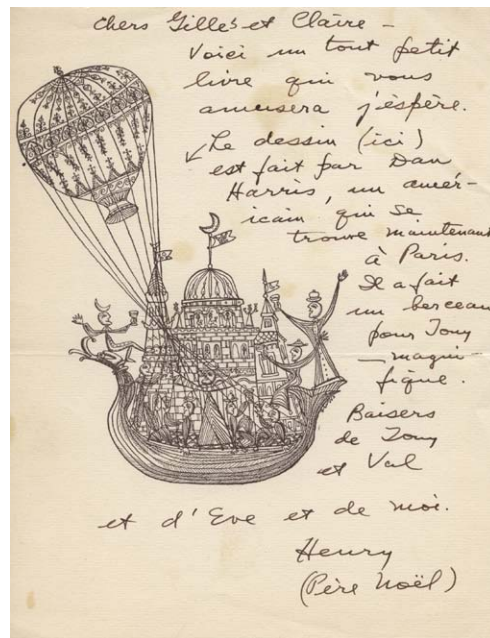 chers Gilles et Claire –
Voici un tout petit
livre qui vous
amusera j'éspère.
Le dessin (ici)
est fait par Dan
Harris, un amér-
icain, qui se
trouve maintenant
à Paris.
Il a fait
un berceau
pour Tony
– magni-
fique.
Baisers
de Tony
et Val
et d'Eve et de moi.
Henry
(Père Noël)